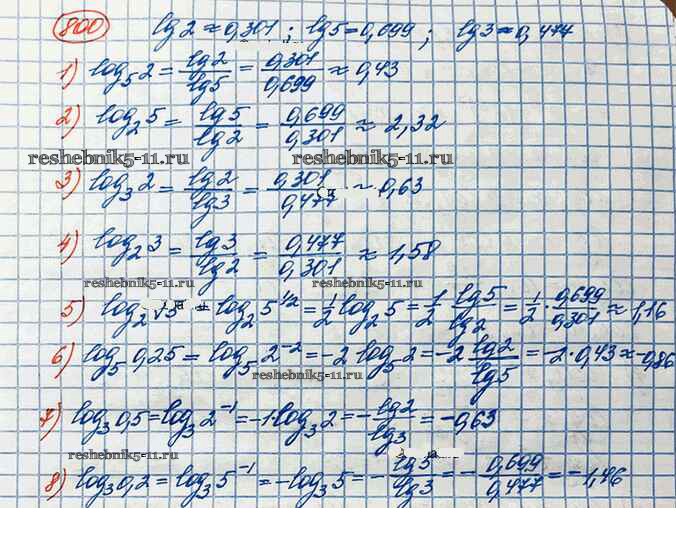 800 lg2≈0,301; lg5=0,699; lg3≈0,477
1) log₅2 = lg2/lg5 = 0,301/0,699 ≈ 0,43
2) log₂5 = lg5/lg2 = 0,699/0,301 ≈ 2,32
reshebnik5-11.ru reshebnik5-11.ru
3) log₃2 = lg2/lg3 = 0,301/0,477 ≈ 0,63
4) log₂3 = lg3/lg2 = 0,477/0,301 ≈ 1,58
reshebnik5-11.ru reshebnik5-11.ru
5) log₂√5 = log₂5^1/2 = 1/2 log₂5 = 1/2 lg5/lg2 = 1/2 · 0,699/0,301 ≈ 1,16
6) log₅0,25 = log₅2⁻² = -2 log₅2 = -2 lg2/lg5 = -2·0,43 ≈ -0,86
reshebnik5-11.ru
7) log₃0,5 = log₃2⁻¹ = -1·log₃2 = -lg2/lg3 = -0,63
reshebnik5-11.ru
8) log₃0,2 = log₃5⁻¹ = -log₃5 = -lg5/lg3 = -0,699/0,477 = -1,46